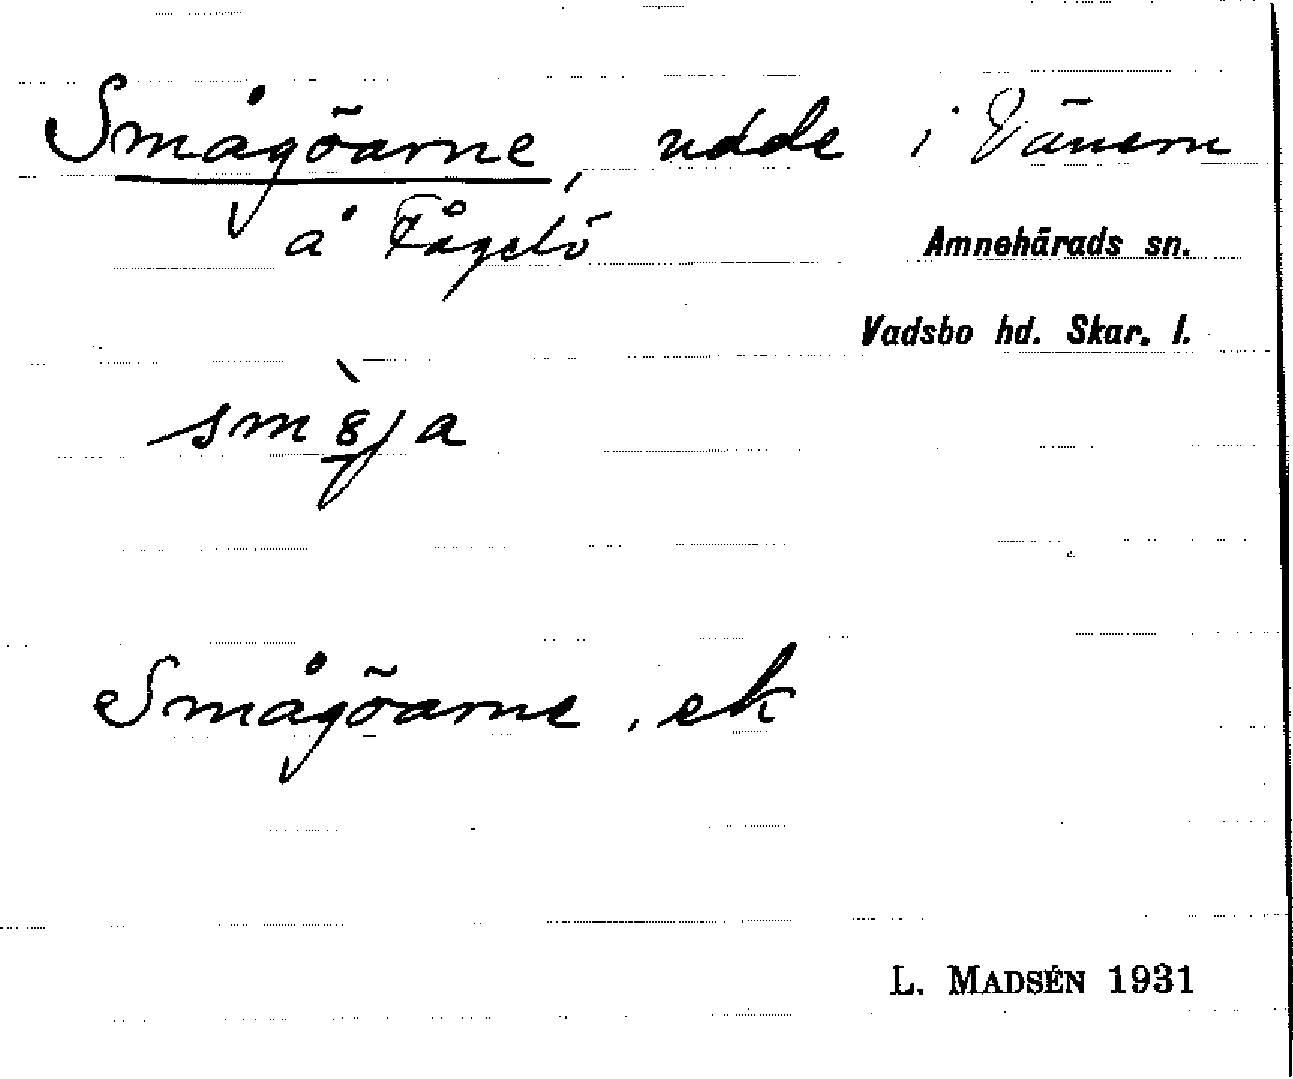 Smågöarne, udde i Vänern
å Fågelö
Amnehärads sn.
Vadsbo hd. Skar. l.
Smågöarne, ek
L. MADSÉN 1931